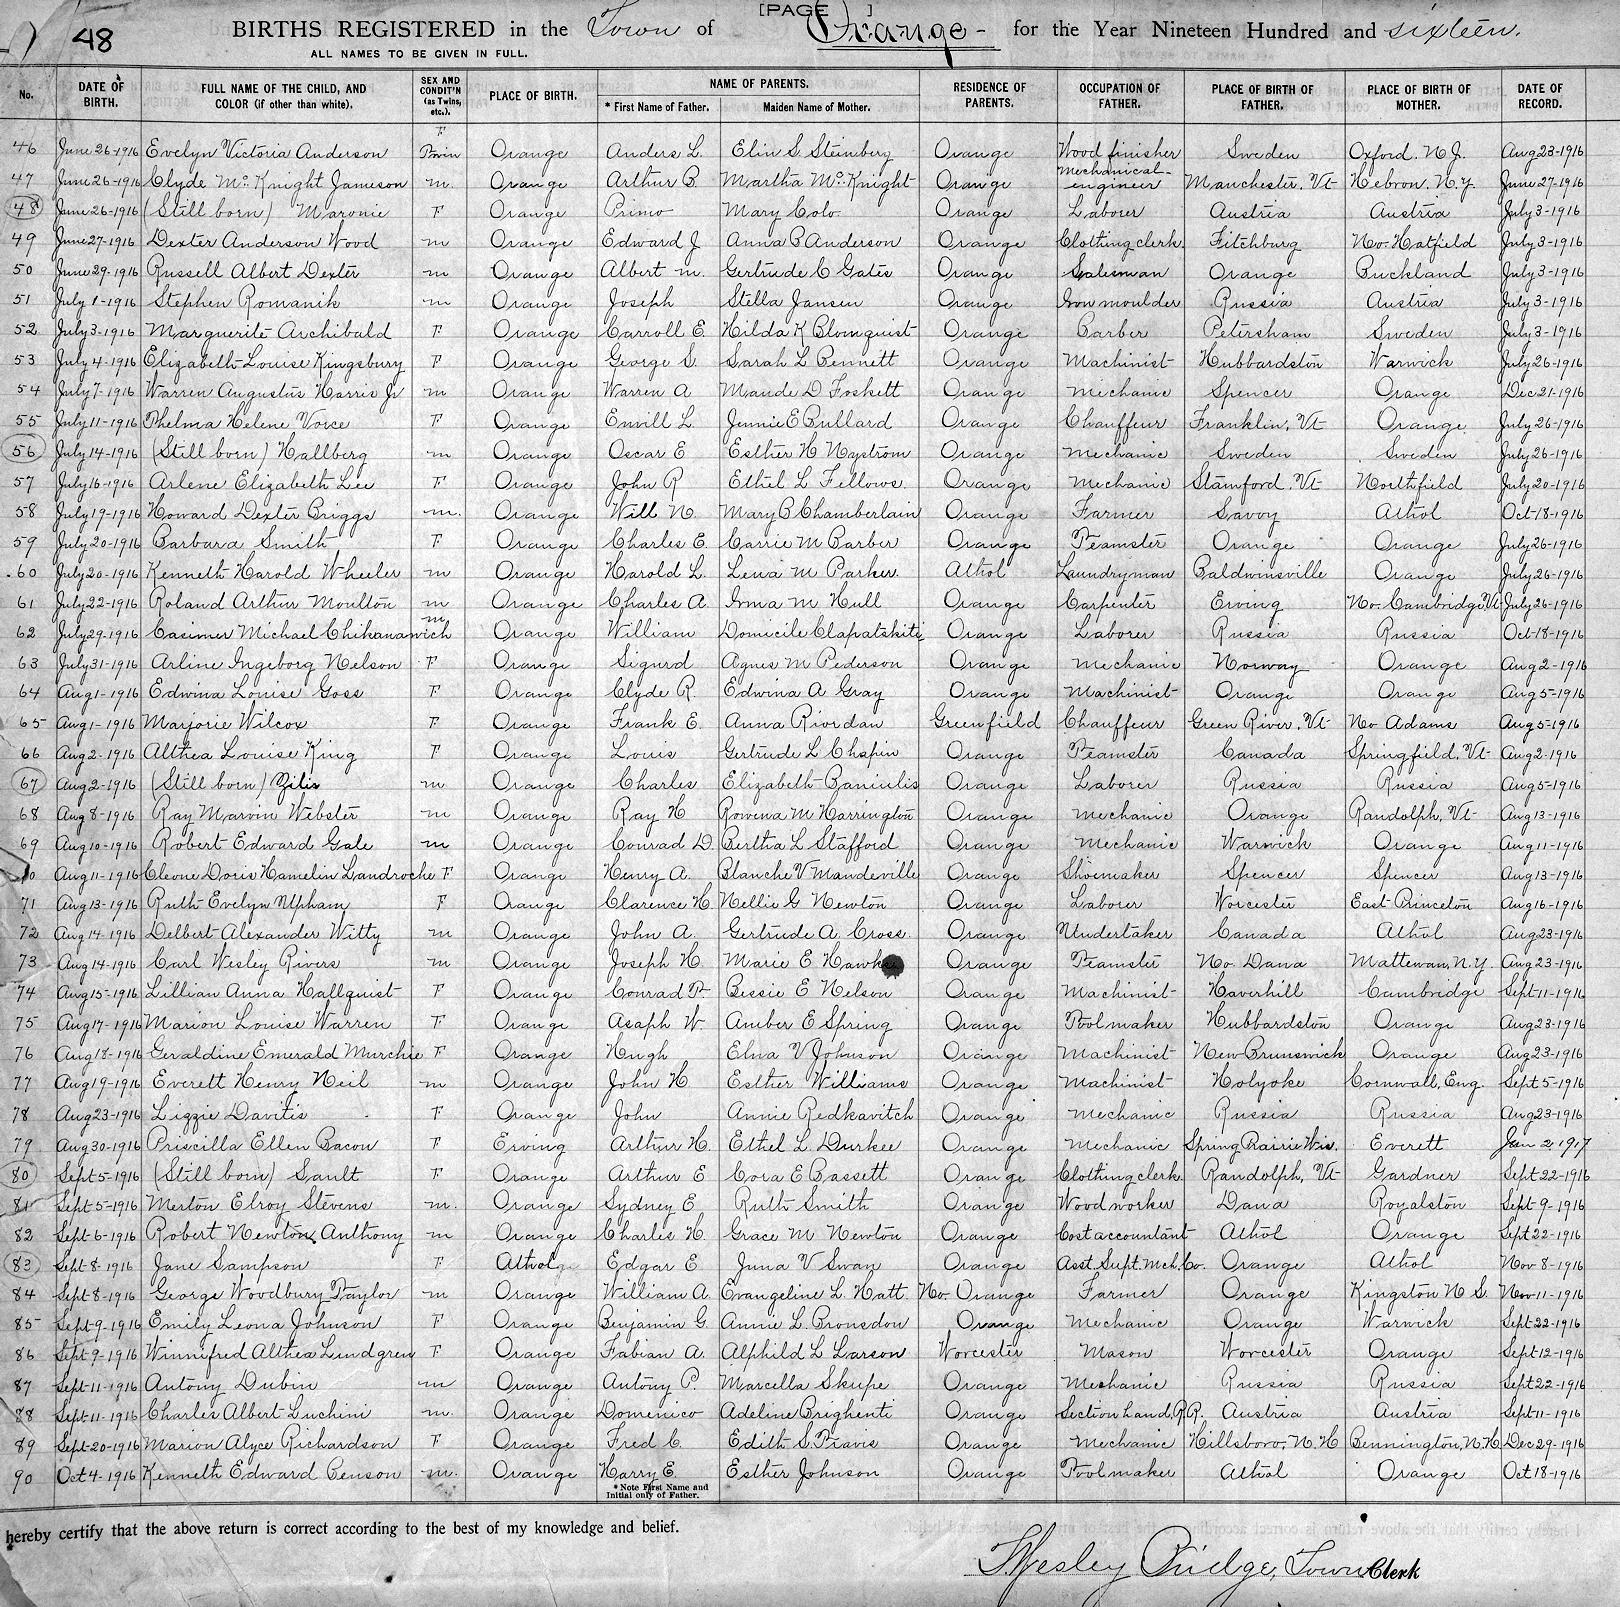 [PAGE ]
48 BIRTHS REGISTERED in the Town of Orange - for the Year Nineteen Hundred and sixteen.
ALL NAMES TO BE GIVEN IN FULL.
No. DATE OF BIRTH. FULL NAME OF THE CHILD, AND COLOR (if other than white). SEX AND CONDIT'N (as Twins, etc.). PLACE OF BIRTH. NAME OF PARENTS. * First Name of Father. Maiden Name of Mother. RESIDENCE OF PARENTS. OCCUPATION OF FATHER. PLACE OF BIRTH OF FATHER. PLACE OF BIRTH OF MOTHER. DATE OF RECORD.
46 June 26-1916 Evelyn Victoria Anderson F Twin Orange Anders L. Elin S. Steinberg Orange Wood finisher Sweden Oxford, N.J. Aug 23-1916
47 June 26-1916 Clyde Mc Knight Jameson m. Orange Arthur B. Martha Mc Knight Orange mechanical engineer Manchester, Vt Hebron, N.Y. June 27-1916
48 June 26-1916 (Still born) Maronie F Orange Primo Mary Colo Orange Laborer Austria Austria July 3-1916
49 June 27-1916 Dexter Anderson Wood m Orange Edward J Anna P Anderson Orange Clothing clerk Fitchburg No. Hatfield July 3-1916
50 June 29-1916 Russell Albert Dexter m Orange Albert m. Gertrude C Gates Orange Salesman Orange Buckland July 3-1916
51 July 1-1916 Stephen Romanik m Orange Joseph Stella Jansen Orange Iron moulder Russia Austria July 3-1916
52 July 3-1916 Marguerite Archibald F Orange Carroll E. Hilda K Blomquist Orange Barber Petersham Sweden July 3-1916
53 July 4-1916 Elizabeth Louise Kingsbury F Orange George S. Sarah L Bennett Orange Machinist Hubbardston Warwick July 26-1916
54 July 7-1916 Warren Augustus Harris Jr m Orange Warren A Maude D Foskett Orange mechanic Spencer Orange Dec 21-1916
55 July 11-1916 Thelma Helene Vorce F Orange Envill L. Jennie E Bullard Orange Chauffeur Franklin, Vt Orange July 26-1916
56 July 14-1916 (Still born) Hallberg m Orange Oscar E Esther H Nystrom Orange mechanic Sweden Sweden July 26-1916
57 July 16-1916 Arlene Elizabeth Lee F Orange John R Ethel L Fellows Orange Mechanic Stamford, Vt Northfield July 20-1916
58 July 19-1916 Howard Dexter Briggs m. Orange Will N. Mary B Chamberlain Orange Farmer Savoy Athol Oct 18-1916
59 July 20-1916 Barbara Smith F Orange Charles E. Carrie M Barber Orange Teamster Orange Orange July 26-1916
60 July 20-1916 Kenneth Harold Wheeler m Orange Harold L. Lena M Parker. Athol Laundryman Baldwinsville Orange July 26-1916
61 July 22-1916 Roland Arthur Moulton m Orange Charles A. Irma M Hull Orange Carpenter Erving No. Cambridge, Vt July 26-1916
62 July 29-1916 Casimer Michael Chikanawich m Orange William Domicile Clapatskite Orange Laborer Russia Russia Oct 18-1916
63 July 31-1916 Arline Ingeborg Nelson F Orange Sigurd Agnes M Pederson Orange mechanic Norway Orange Aug 2-1916
64 Aug 1-1916 Edwina Louise Goss F Orange Clyde R. Edwina A Gray Orange Machinist Orange Orange Aug 5-1916
65 Aug 1-1916 Marjorie Wilcox F Orange Frank E. Anna Riordan Greenfield Chauffeur Green River, Vt No Adams Aug 5-1916
66 Aug 2-1916 Althea Louise King F Orange Louis Gertrude L Chapin Orange Teamster Canada Springfield, Vt Aug 2-1916
67 Aug 2-1916 (Still born) Zilis m Orange Charles Elizabeth Baniulis Orange Laborer Russia Russia Aug 5-1916
68 Aug 8-1916 Ray Marvin Webster m Orange Ray H Rowena M Harrington Orange mechanic Orange Randolph, Vt Aug 13-1916
69 Aug 10-1916 Robert Edward Gale m Orange Conrad D Bertha L Stafford Orange mechanic Warwick Orange Aug 11-1916
70 Aug 11-1916 Cleone Doris Hamelin Landroche F Orange Henry A. Blanche V Mandeville Orange Shoemaker Spencer Spencer Aug 13-1916
71 Aug 13-1916 Ruth Evelyn Upham F Orange Clarence H. Nellie G Newton Orange Laborer Worcester East Princeton Aug 16-1916
72 Aug 14-1916 Delbert Alexander Witty m Orange John A. Gertrude A. Cross. Orange Undertaker Canada Athol Aug 23-1916
73 Aug 14-1916 Carl Wesley Rivers m Orange Joseph H. Marie E Hawks Orange Teamster No. Dana Mattewan, N.Y. Aug 23-1916
74 Aug 15-1916 Lillian Anna Hallquist F Orange Conrad P. Bessie E Nelson Orange Machinist Haverhill Cambridge Sept 11-1916
75 Aug 17-1916 Marion Louise Warren F Orange Asaph W. Amber E Spring Orange Tool maker Hubbardston Orange Aug 23-1916
76 Aug 18-1916 Geraldine Emerald Murchie F Orange Hugh Elna V Johnson Orange Machinist New Brunswick Orange Aug 23-1916
77 Aug 19-1916 Everett Henry Neil m Orange John H Esther Williams Orange Machinist Holyoke Cornwall, Eng. Sept 5-1916
78 Aug 23-1916 Lizzie Davitis F Orange John Annie Redkavitch Orange Mechanic Russia Russia Aug 23-1916
79 Aug 30-1916 Priscilla Ellen Bacon F Erving Arthur H. Ethel L Durkee Orange Mechanic Spring Prairie Wis. Everett Jan 2 1917
80 Sept 5-1916 (Still born) Sault F Orange Arthur E Cora E Bassett Orange Clothing clerk Randolph, Vt Gardner Sept 22-1916
81 Sept 5-1916 Merton Elroy Stevens m. Orange Sydney E Ruth Smith Orange Wood worker Dana Royalston Sept 9-1916
82 Sept 6-1916 Robert Newton Anthony m Orange Charles H. Grace M Newton Orange Cost accountant Athol Orange Sept 22-1916
83 Sept 8-1916 Jane Sampson F Athol Edgar E Juna V Swan Orange Asst. Supt. Mch. Co. Orange Athol Nov 8-1916
84 Sept 8-1916 George Woodbury Taylor m Orange William A. Evangeline L. Hatt. No. Orange Farmer Orange Kingston N.S. Nov 11-1916
85 Sept 9-1916 Emily Leona Johnson F Orange Benjamin G. Annie L. Bronsdon Orange Mechanic Orange Warwick Sept 22-1916
86 Sept 9-1916 Winnifred Althea Lundgren F Orange Fabian A. Alphild L Larson Worcester Mason Worcester Orange Sept 12-1916
87 Sept 11-1916 Antony Dubin m Orange Antony P. Marcella Skupe Orange Mechanic Russia Russia Sept 22-1916
88 Sept 11-1916 Charles Albert Luchini m. Orange Domenico Adeline Brighenti Orange Section hand, R.R. Austria Austria Sept 11-1916
89 Sept 20-1916 Marion Alyce Richardson F Orange Fred C. Edith S. Travis Orange Mechanic Hillsboro, N.H Bennington, N.H Dec 29-1916
90 Oct 4-1916 Kenneth Edward Benson m. Orange Harry E. Esther Johnson Orange Tool maker Athol Orange Oct 18-1916
* Note First Name and
Initial only of Father.
hereby certify that the above return is correct according to the best of my knowledge and belief.
Wesley Bridge, Town Clerk